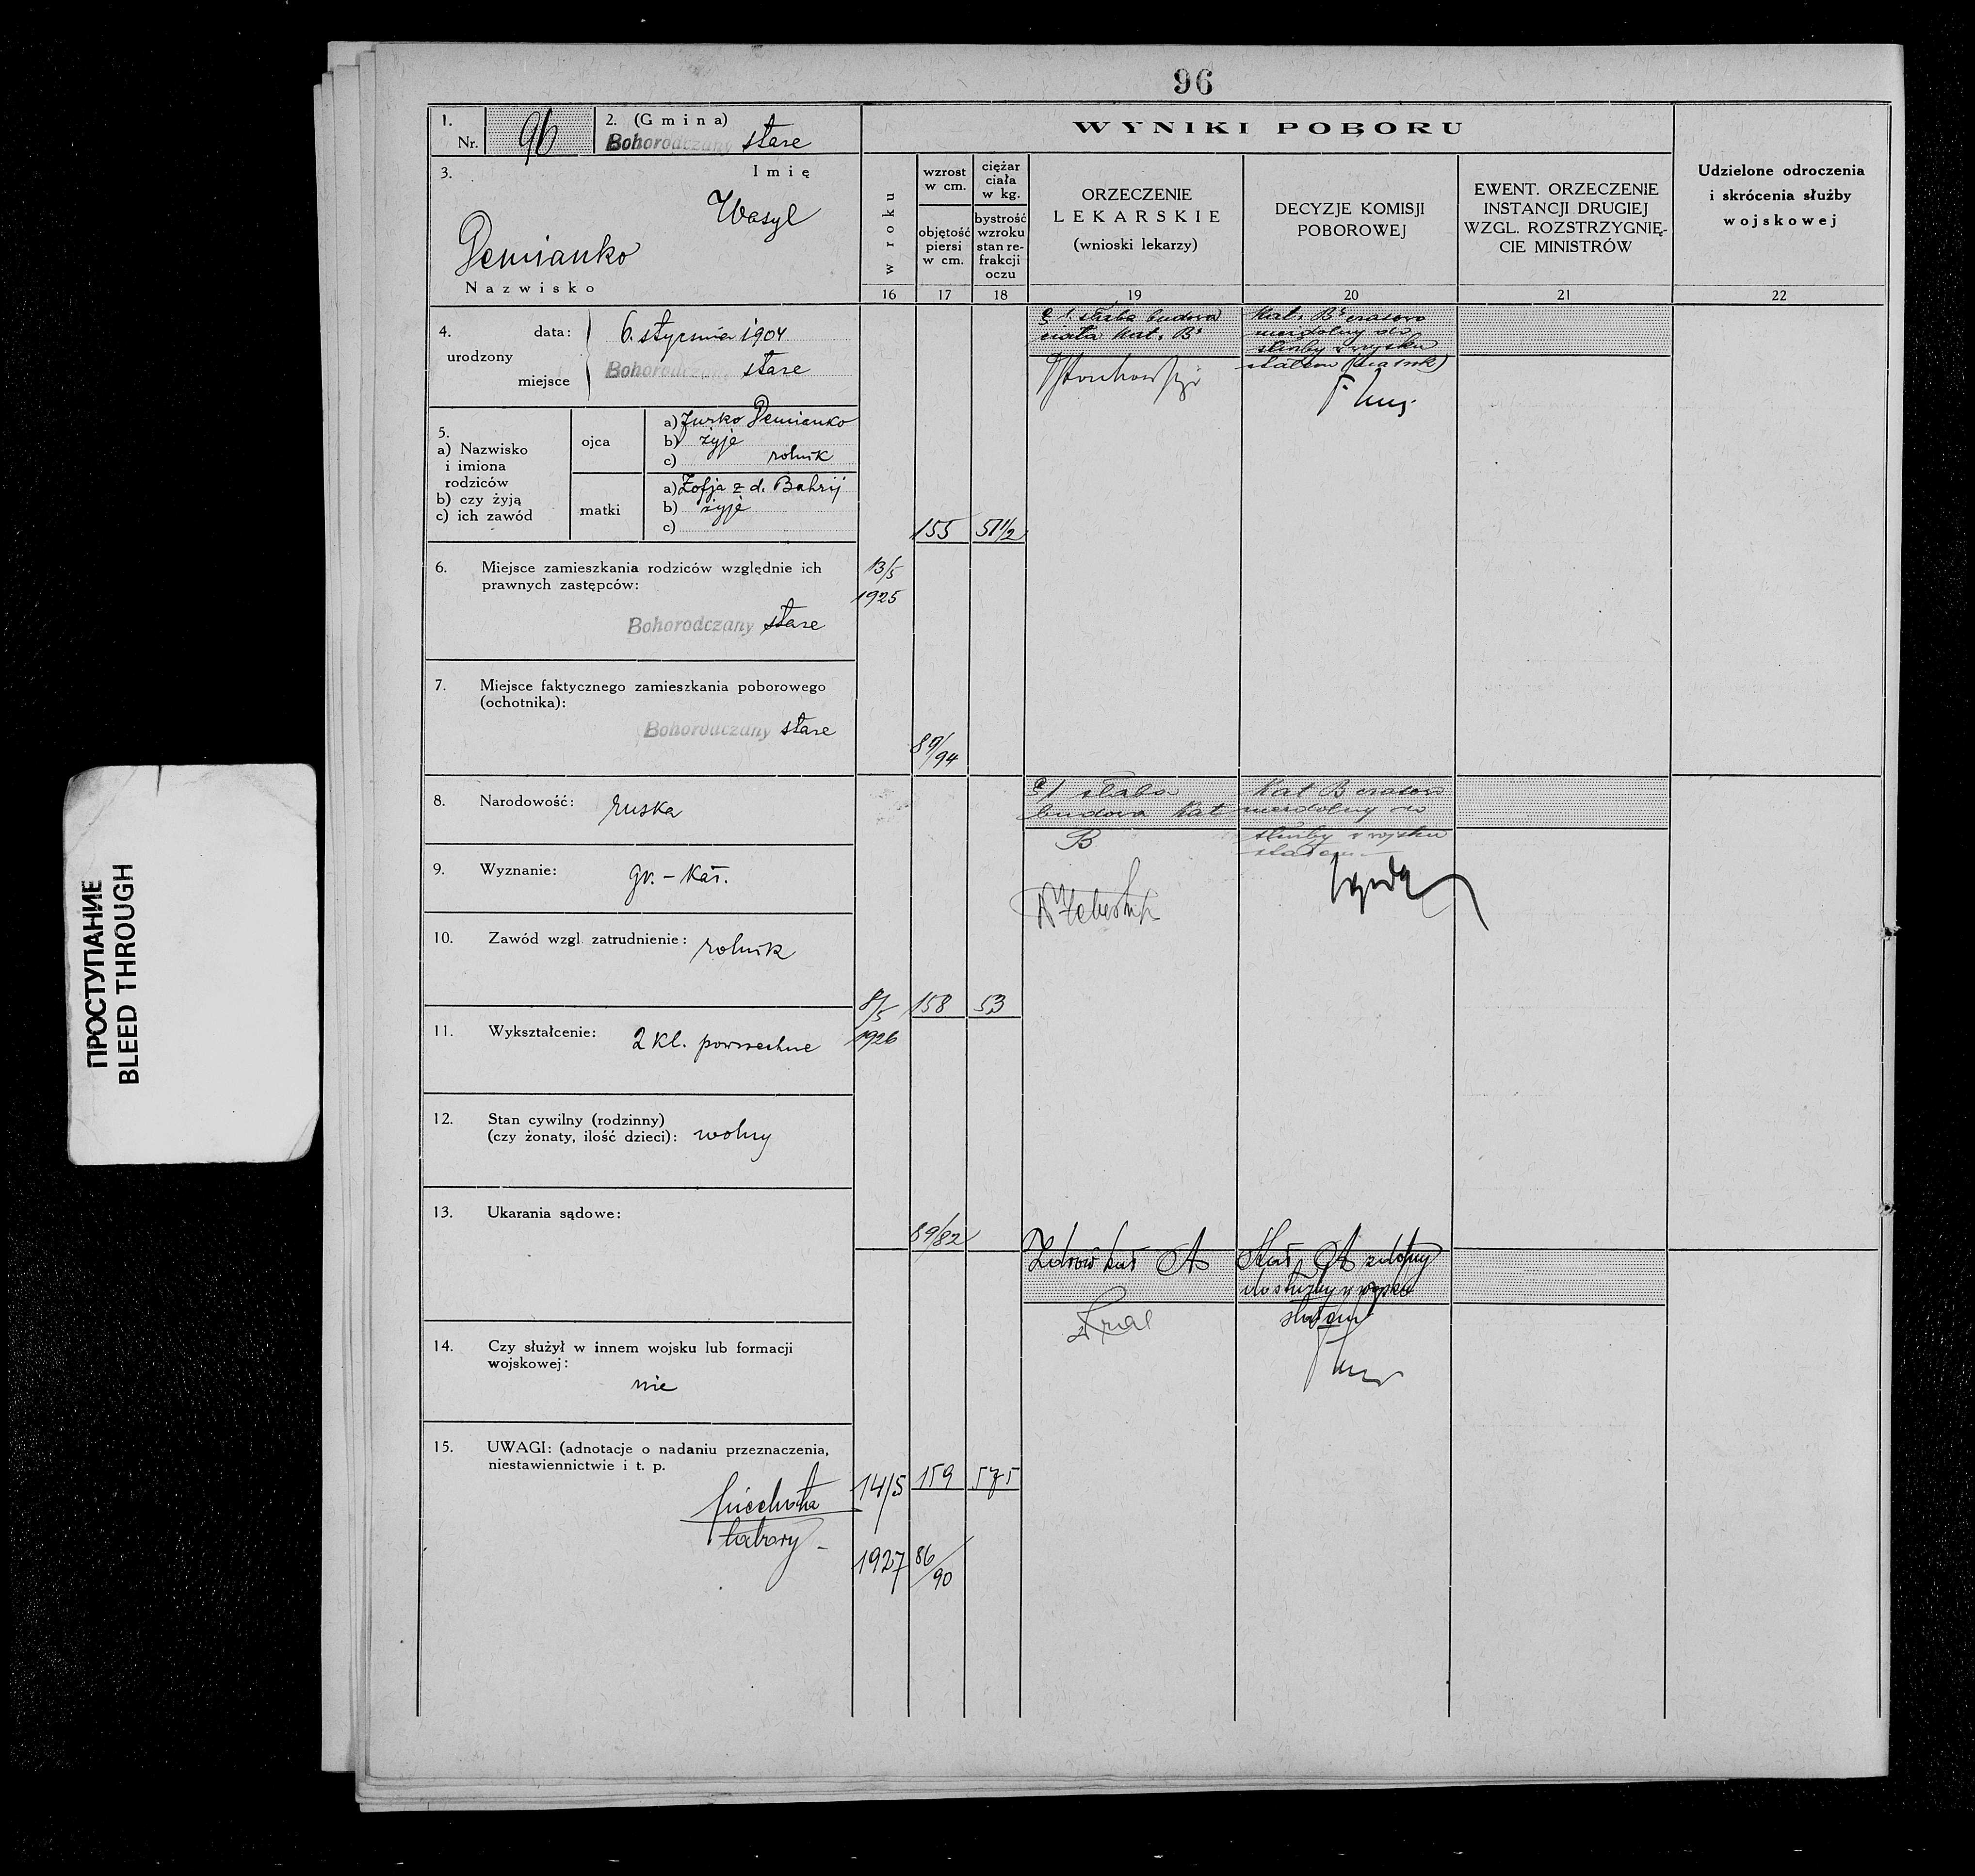 96
1.
Nr. 96
2. (Gmina)
Bohorodczany stare
3. Imię
Wasyl
Demianko
Nazwisko
4. urodzony
data: 6. stycznia 1904
miejsce Bohorodczany stare
5.
a) Nazwisko
i imiona
rodziców
b) czy żyją
c) ich zawód
ojca
a) Jurko Demianko
b) żyje
c) rolnik
matki
a) Zofja z d. Bahrij
b) żyje
c)
6. Miejsce zamieszkania rodziców względnie ich
prawnych zastępców:
Bohorodczany stare
7. Miejsce faktycznego zamieszkania poborowego
(ochotnika):
Bohorodczany stare
8. Narodowość: ruska
9. Wyznanie: gr. - kat.
10. Zawód wzgl. zatrudnienie: rolnik
11. Wykształcenie: 2 kl. powszechne
12. Stan cywilny (rodzinny)
(czy żonaty, ilość dzieci): wolny
13. Ukarania sądowe:
14. Czy służył w innem wojsku lub formacji
wojskowej:
nie
15. UWAGI: (adnotacje o nadaniu przeznaczenia,
niestawiennictwie i t. p.
piechota
tabory -
WYNIKI POBORU
w roku
16
wzrost
w cm.
objętość
piersi
w cm.
17
ciężar
ciała
w kg.
bystrość
wzroku
stan re-
frakcji
oczu
18
ORZECZENIE
LEKARSKIE
(wnioski lekarzy)
19
DECYZJE KOMISJI
POBOROWEJ
20
EWENT. ORZECZENIE
INSTANCJI DRUGIEJ
WZGL. ROZSTRZYGNIĘ-
CIE MINISTRÓW
21
Udzielone odroczenia
i skrócenia służby
wojskowej
22
13/5
1925
155
51 1/2
89/94
słaba budowa
ciała kat. B
Kat. B czasowo
niezdolny do
służby w wojsku
stałem
8/5
1926
158
53
89/82
słaba
budowa Kat
B
Kat B czasowo
niezdolny do
służby w wojsku
stałem
14/5
1927
159
575
86/90
Zdrów kat A
Kat. A zdolny
do służby w wojsku
stałem
ПРОСТУПАНИЕ
BLEED THROUGH